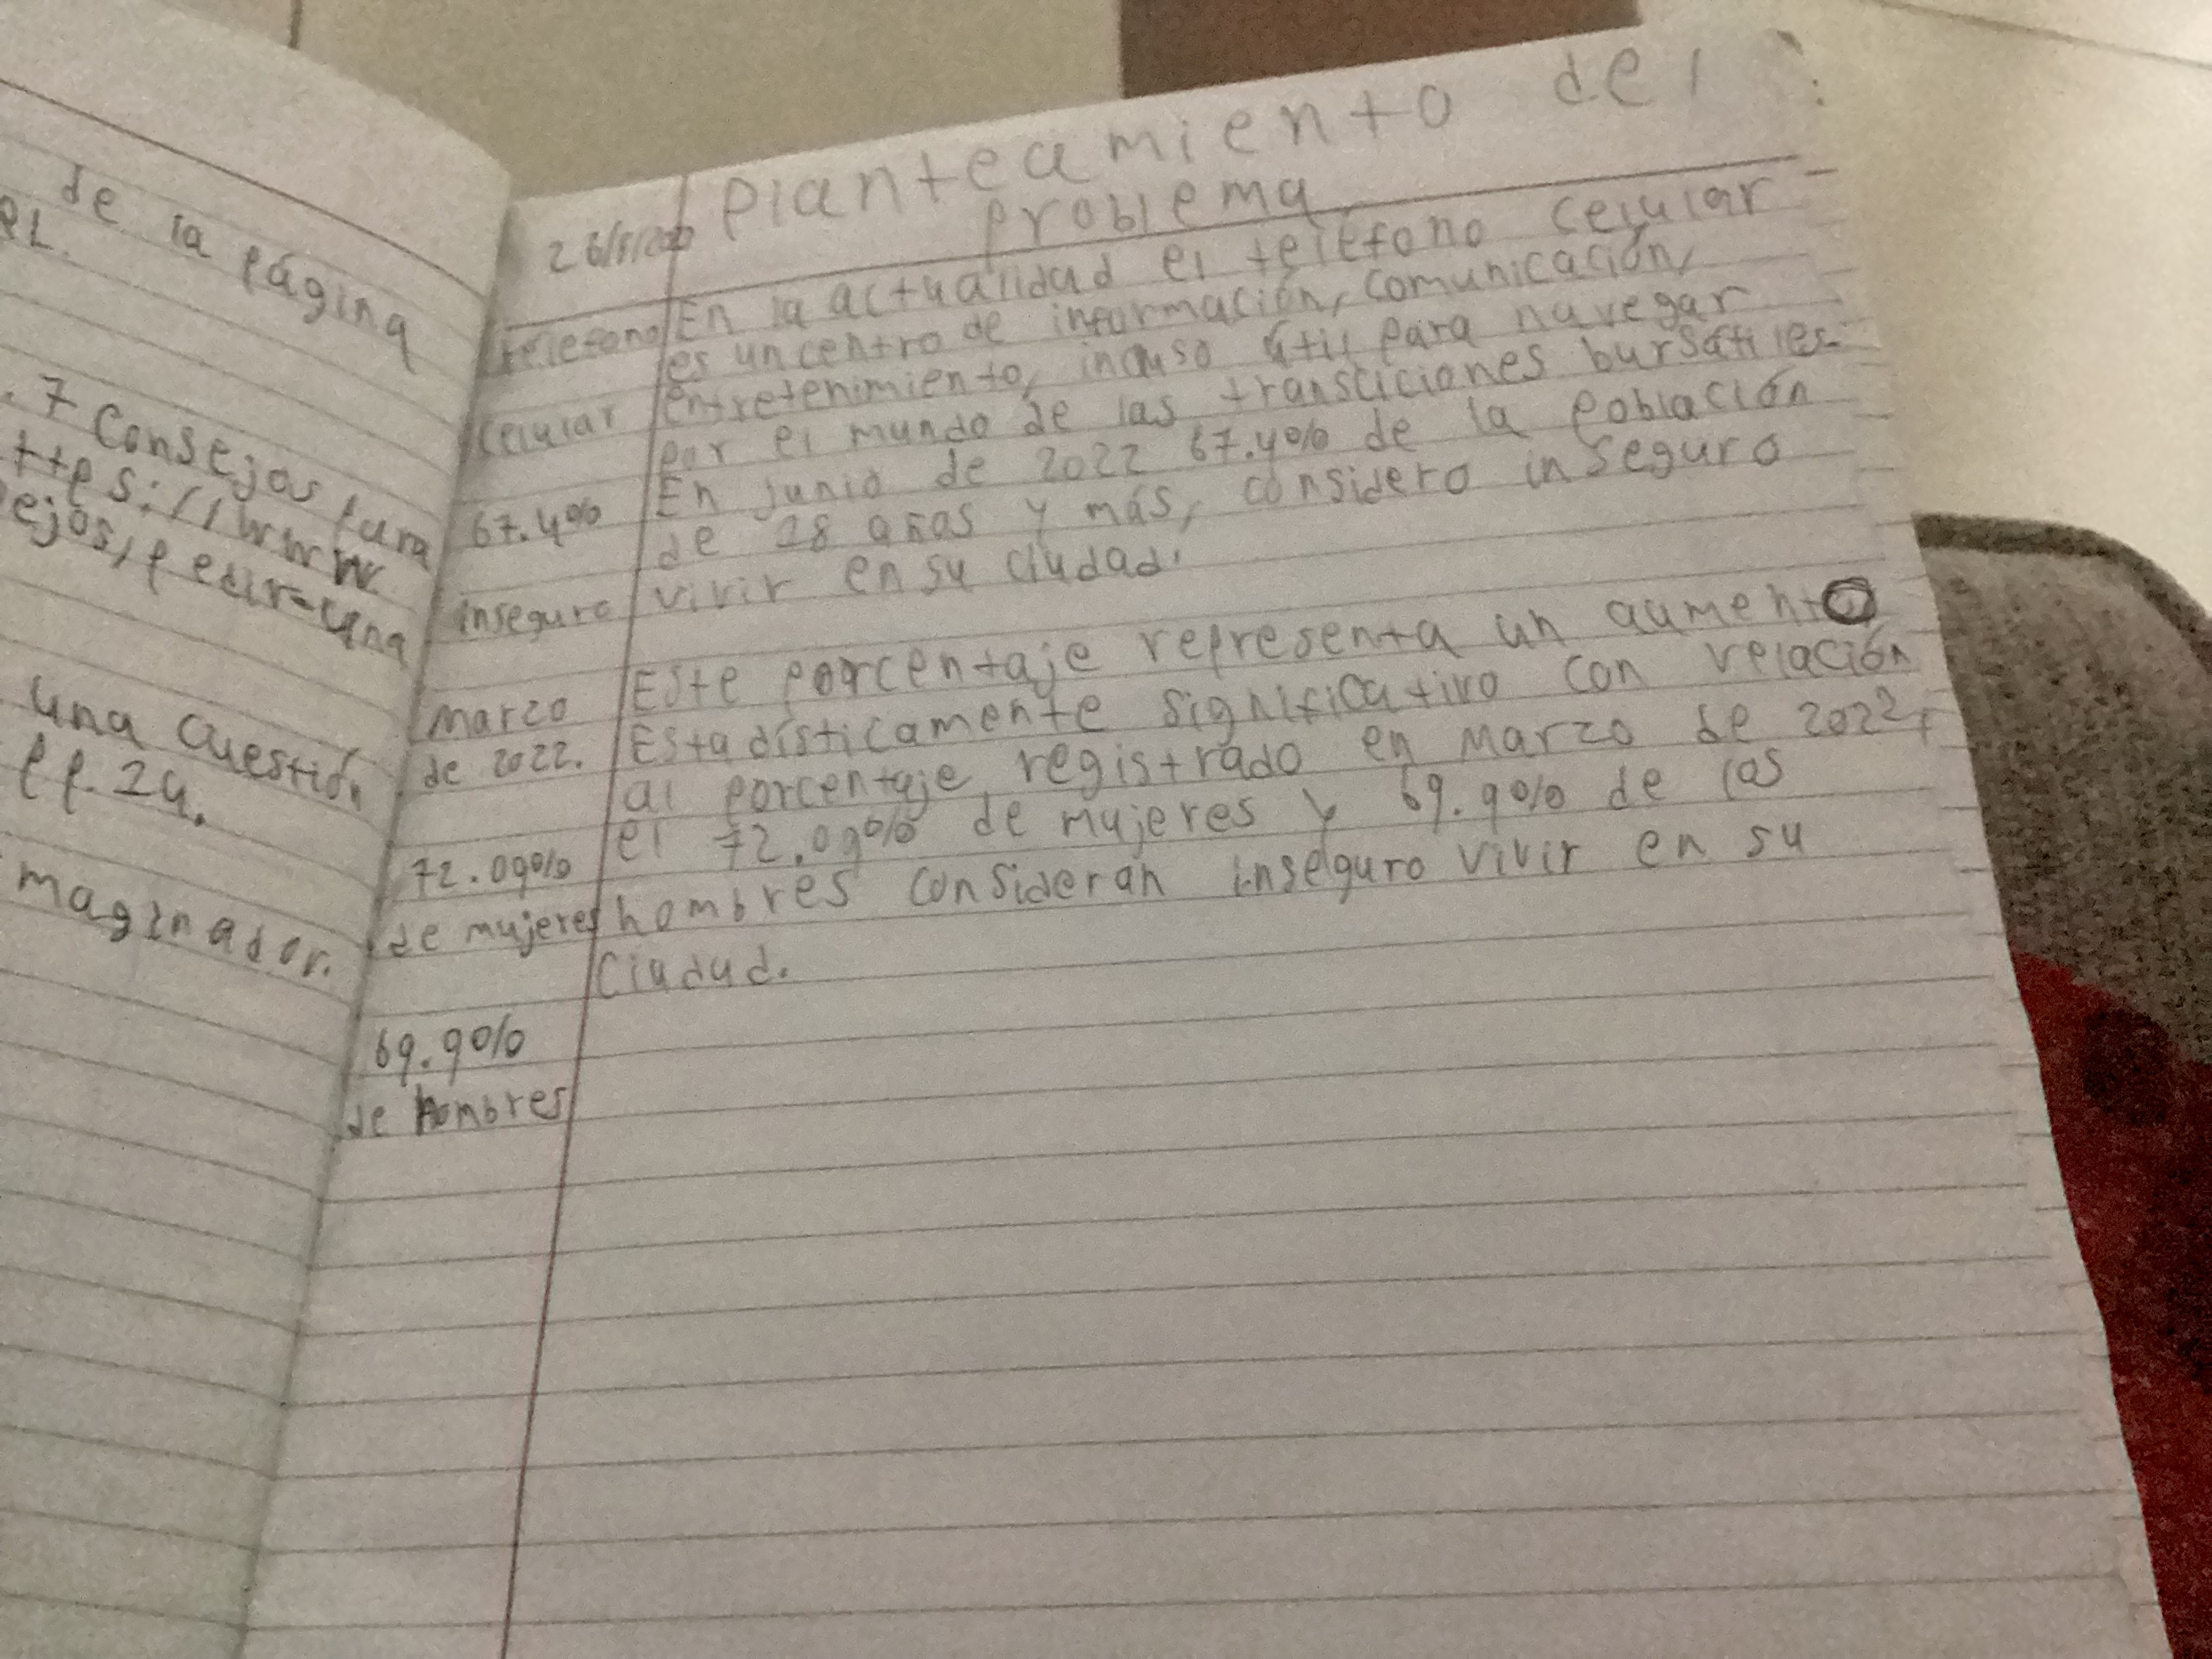 de la página
. 7 Consejos para
ttps://www.
ejos, pedir-una
una cuestión
PP. 24.
maginador.
Planteamiento del
Problema
En la actualidad el teléfono celular
es un centro de información, comunicación,
entretenimiento, incluso útil para navegar
por el mundo de las bursátiles.
En junio de 2022 67.4% de la población
de 28 años y más, considero inseguro
vivir en su ciudad.
Este porcentaje representa un aumento
Estadísticamente significativo con relación
al porcentaje registrado en marzo de 2022,
el 72.09% de mujeres y 69.9% de los
hombres consideran inseguro vivir en su
Ciudad.
teléfono
celular
67.4%
inseguro
marzo
de 2022.
72.09%
de mujeres
69.9%
de hombres